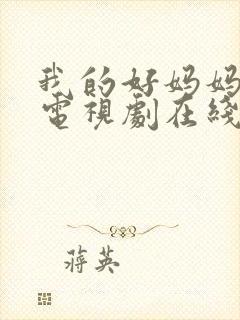 我的好妈妈
電視劇在綫
蒋英